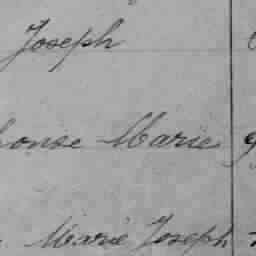 Joseph
honse Marie
Marie Joseph